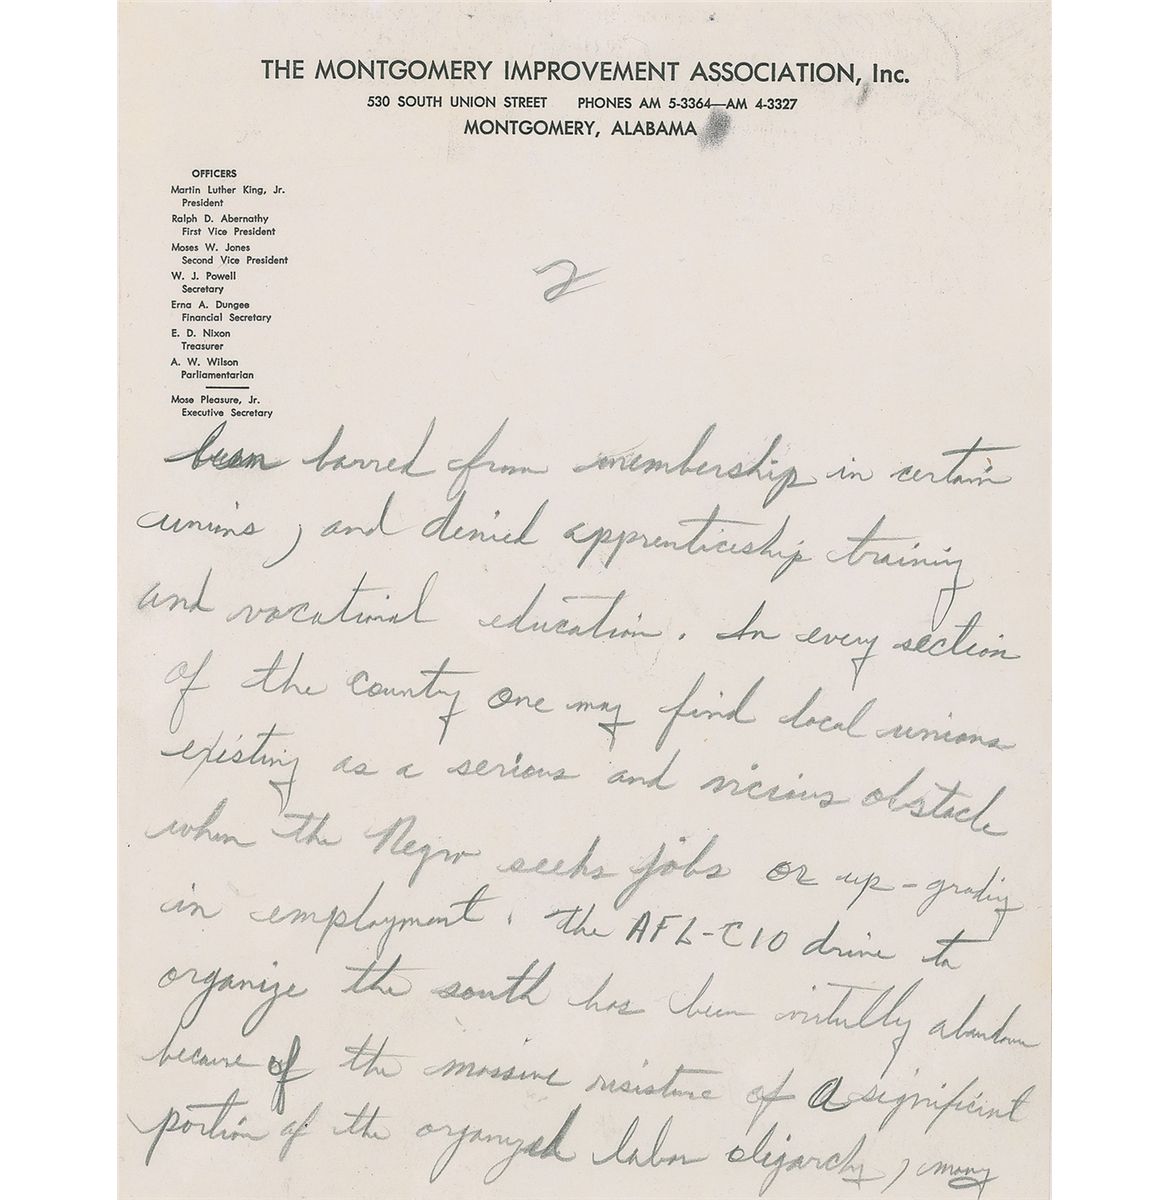 THE MONTGOMERY IMPROVEMENT ASSOCIATION, Inc.
530 SOUTH UNION STREET PHONES AM 5-3364—AM 4-3327
MONTGOMERY, ALABAMA
OFFICERS
Martin Luther King, Jr.
President
Ralph D. Abernathy
First Vice President
Moses W. Jones
Second Vice President
W. J. Powell
Secretary
Erna A. Dungee
Financial Secretary
E. D. Nixon
Treasurer
A. W. Wilson
Parliamentarian
Mose Pleasure, Jr.
Executive Secretary
2
been barred from membership in certain
unions, and denied apprenticeship training
and vocational education. In every section
of the county one may find local unions
existing as a serious and vicious obstacle
when the Negro seeks jobs or up-grading
in employment. The AFL-CIO drive to
organize the south has been virtully abandon
because of the massive resistence of a significent
portion of the organized labor oligarchy, many